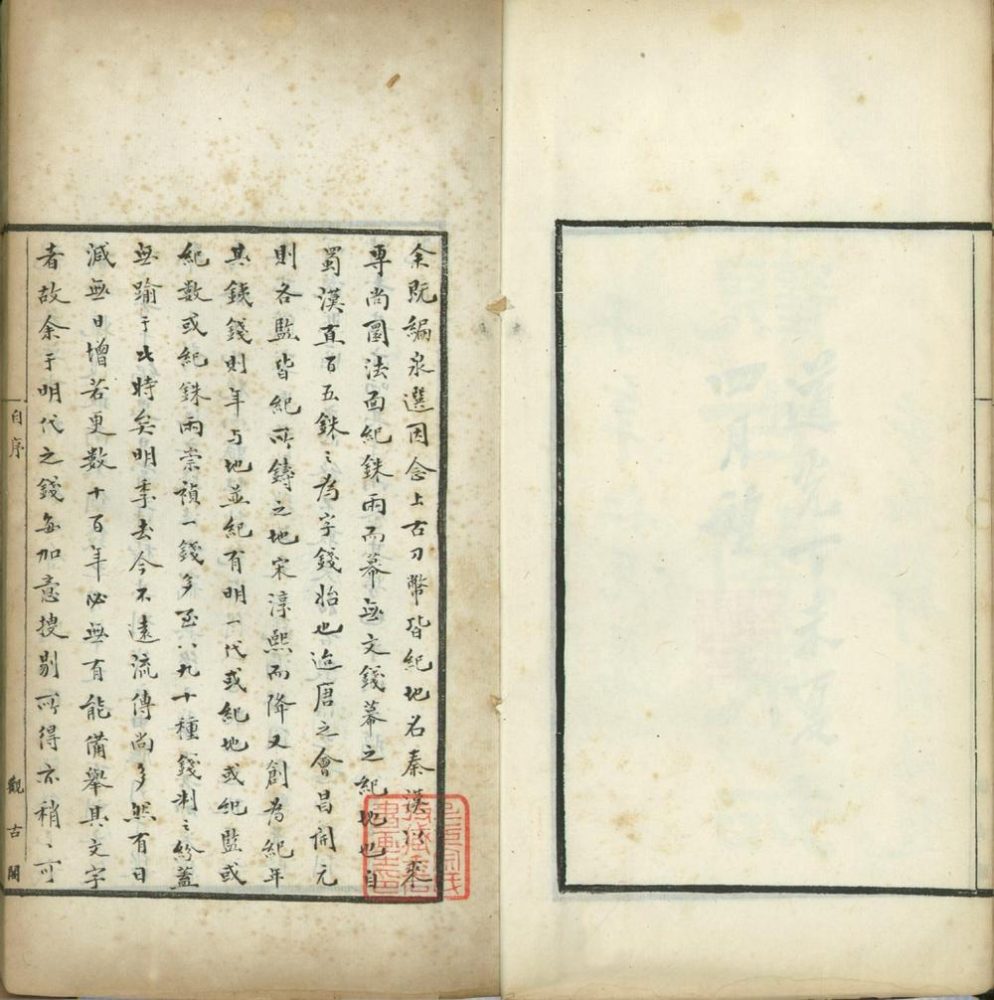 余既編泉選因念上古刀幣皆紀地名秦漢以來
專尚圜法面紀銖兩而幕無文錢幕之紀地也自
蜀漢直百五銖之為字錢始也迨唐之會昌開元
則各監皆紀所鑄之地宋淳熙而降又創為紀年
其鐵錢則年与地並紀有明一代或紀地或紀監或
紀數或紀銖兩崇禎一錢多至八九十種錢制之紛蓋
無踰于此時矣明季去今不遠流傳尚多然有日
減無日增若更数十百年必無有能備舉其文字
者故余于明代之錢每加意搜剔所得亦稍〻可
自序
觀古閣